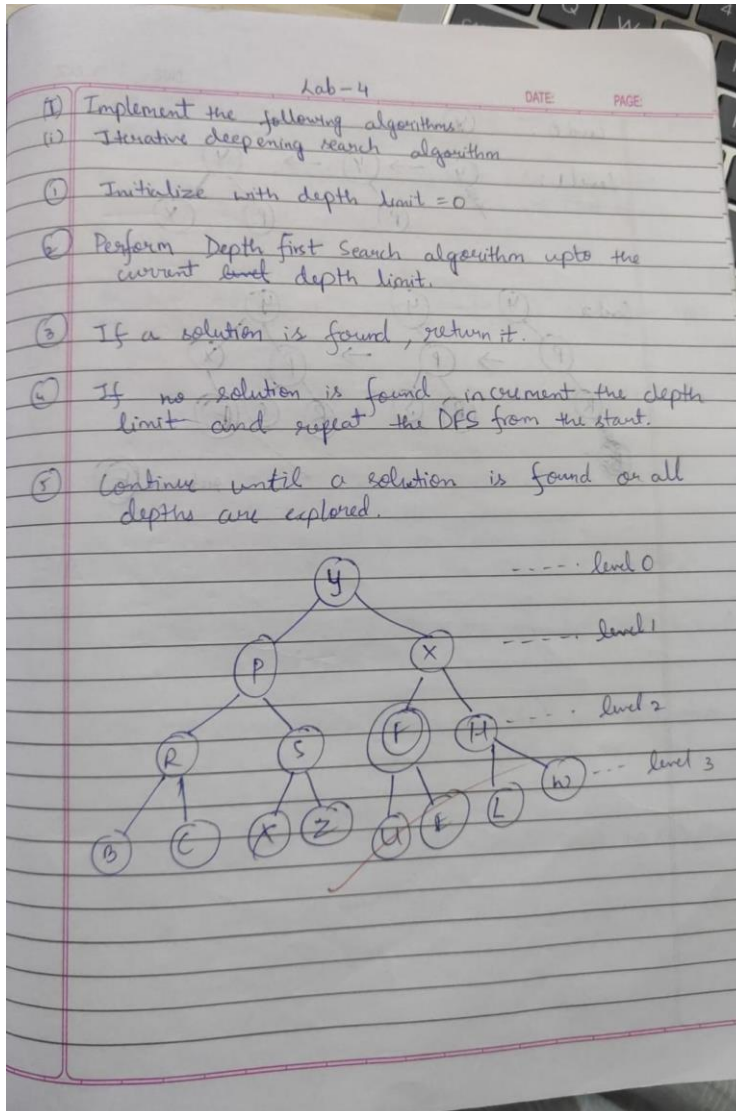 Q W 4
Lab-4
DATE: PAGE:
(I) Implement the following algorithms:
(i) Iterative deepening search algorithm
① Initialize with depth limit = 0
② Perform Depth first Search algorithm upto the
current level depth limit.
③ If a solution is found, return it.
④ If no solution is found, increment the depth
limit and repeat the DFS from the start.
⑤ Continue until a solution is found or all
depths are explored.
Y ----- level 0
P X ----- level 1
R S F H ----- level 2
B C X Z U E L W --- level 3